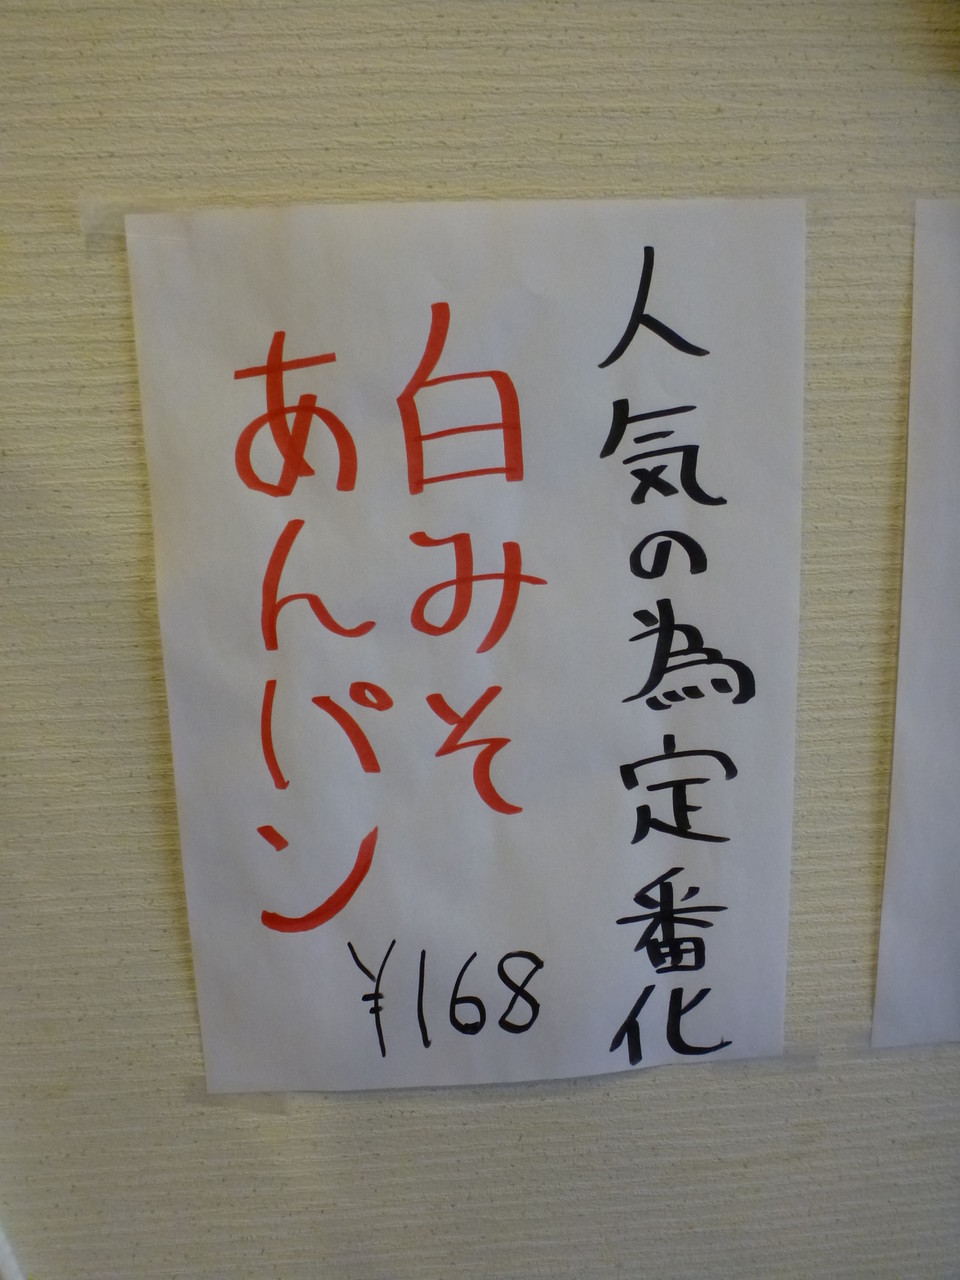 人気の為定番化
白みそ
あんパン
¥168